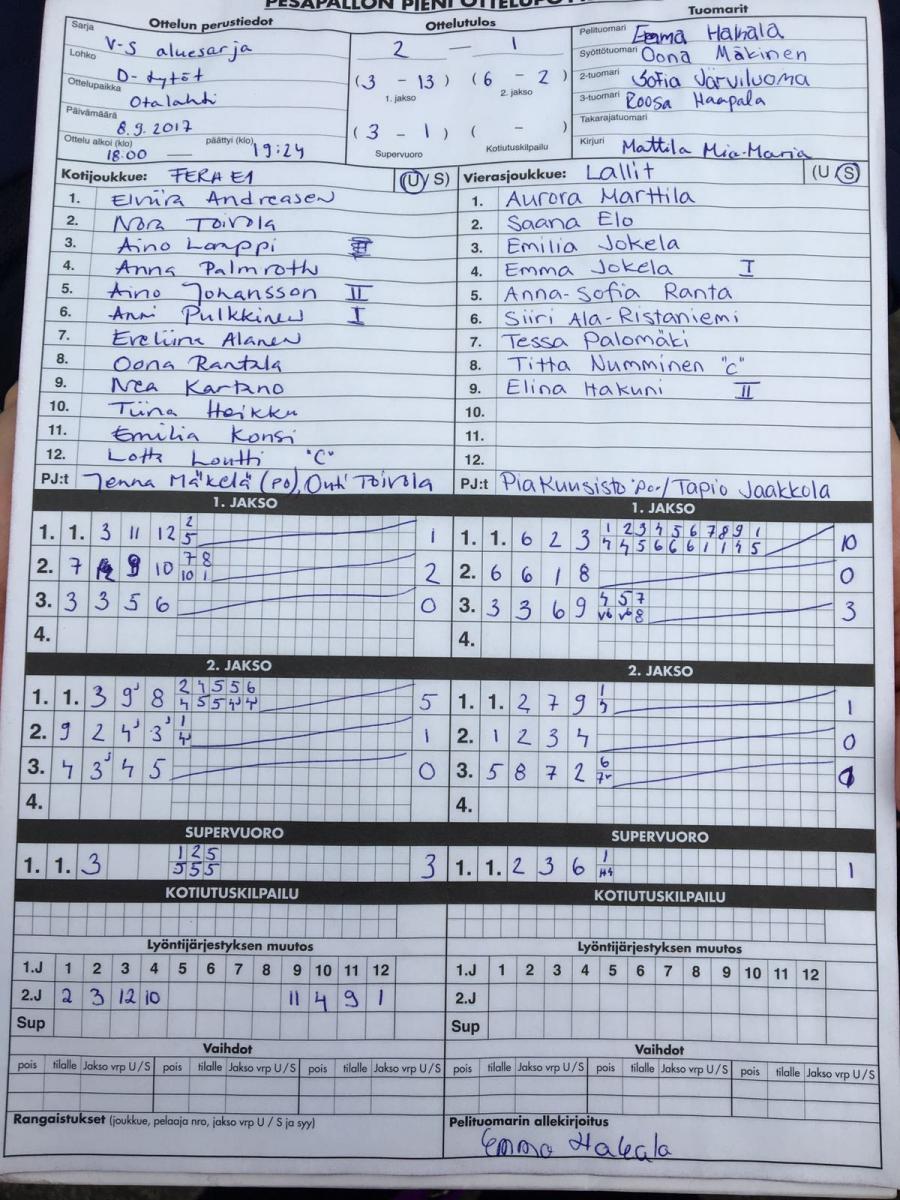 PESÄPALLON PIENI OTTELUPÖ
Ottelun perustiedot
Sarja V-S aluesarja
Lohko D-tytöt
Ottelupaikka Otalahti
Päivämäärä 8.9.2017
Ottelu alkoi (klo) 18:00 — päättyi (klo) 19:24
Ottelutulos
2 — 1
(3 - 13) (6 - 2)
1. jakso 2. jakso
(3 - 1) ( - )
Supervuoro Kotiutuskilpailu
Tuomarit
Pelituomari Emma Hakala
Syöttötuomari Oona Mäkinen
2-tuomari Sofia Järviluoma
3-tuomari Roosa Haapala
Takarajatuomari
Kirjuri Mattila Mia-Maria
Kotijoukkue: FERA E1 (U/S)
1. Elviira Andreasen
2. Nora Toivola
3. Aino Lamppi III
4. Anna Palmroth
5. Aino Johansson II
6. Anni Pulkkinen I
7. Eveliina Alanen
8. Oona Rantala
9. Nea Kartano
10. Tiina Heikku
11. Emilia Konsi
12. Lotta Loutti "C"
PJ:t Jenna Mäkelä (PO), Outi Toivola
Vierasjoukkue: Lallit (U/S)
1. Aurora Marttila
2. Saana Elo
3. Emilia Jokela
4. Emma Jokela I
5. Anna-Sofia Ranta
6. Siiri Ala-Ristaniemi
7. Tessa Palomäki
8. Titta Numminen "C"
9. Elina Hakuni II
10.
11.
12.
PJ:t Pia Kuusisto "po"/Tapio Jaakkola
1. JAKSO
1. 1. 3 11 12 2 1
5
2. 7 9 10 7 8 2
10 1
3. 3 3 5 6 0
4.
1. JAKSO
1. 1. 6 2 3 1 2 3 4 5 6 7 8 9 1 10
4 4 5 6 6 6 1 1 4 5
2. 6 6 1 8 0
3. 3 3 6 9 4 5 7 3
v6 v6 8
4.
2. JAKSO
1. 1. 3 9' 8 2 4 5 5 6 5
4 5 5 4' 4'
2. 9 2 4' 3' 1 1
4'
3. 4 3' 4 5 0
4.
2. JAKSO
1. 1. 2 7 9 1 1
2. 1 2 3 4 0
3. 5 8 7 2 6
4.
SUPERVUORO
1. 1. 3 1 2 5 3
5 5 5
SUPERVUORO
1. 1. 2 3 6 1 1
KOTIUTUSKILPAILU
KOTIUTUSKILPAILU
Lyöntijärjestyksen muutos
1.J 1 2 3 4 5 6 7 8 9 10 11 12
2.J 2 3 12 10 11 4 9 1
Sup
Lyöntijärjestyksen muutos
1.J 1 2 3 4 5 6 7 8 9 10 11 12
2.J
Sup
Vaihdot
pois tilalle Jakso vrp U/S pois tilalle Jakso vrp U/S pois tilalle Jakso vrp U/S
Vaihdot
pois tilalle Jakso vrp U/S pois tilalle Jakso vrp U/S pois tilalle Jakso vrp U/S
Rangaistukset (joukkue, pelaaja nro, jakso vrp U / S ja syy)
Pelituomarin allekirjoitus
Emma Hakala